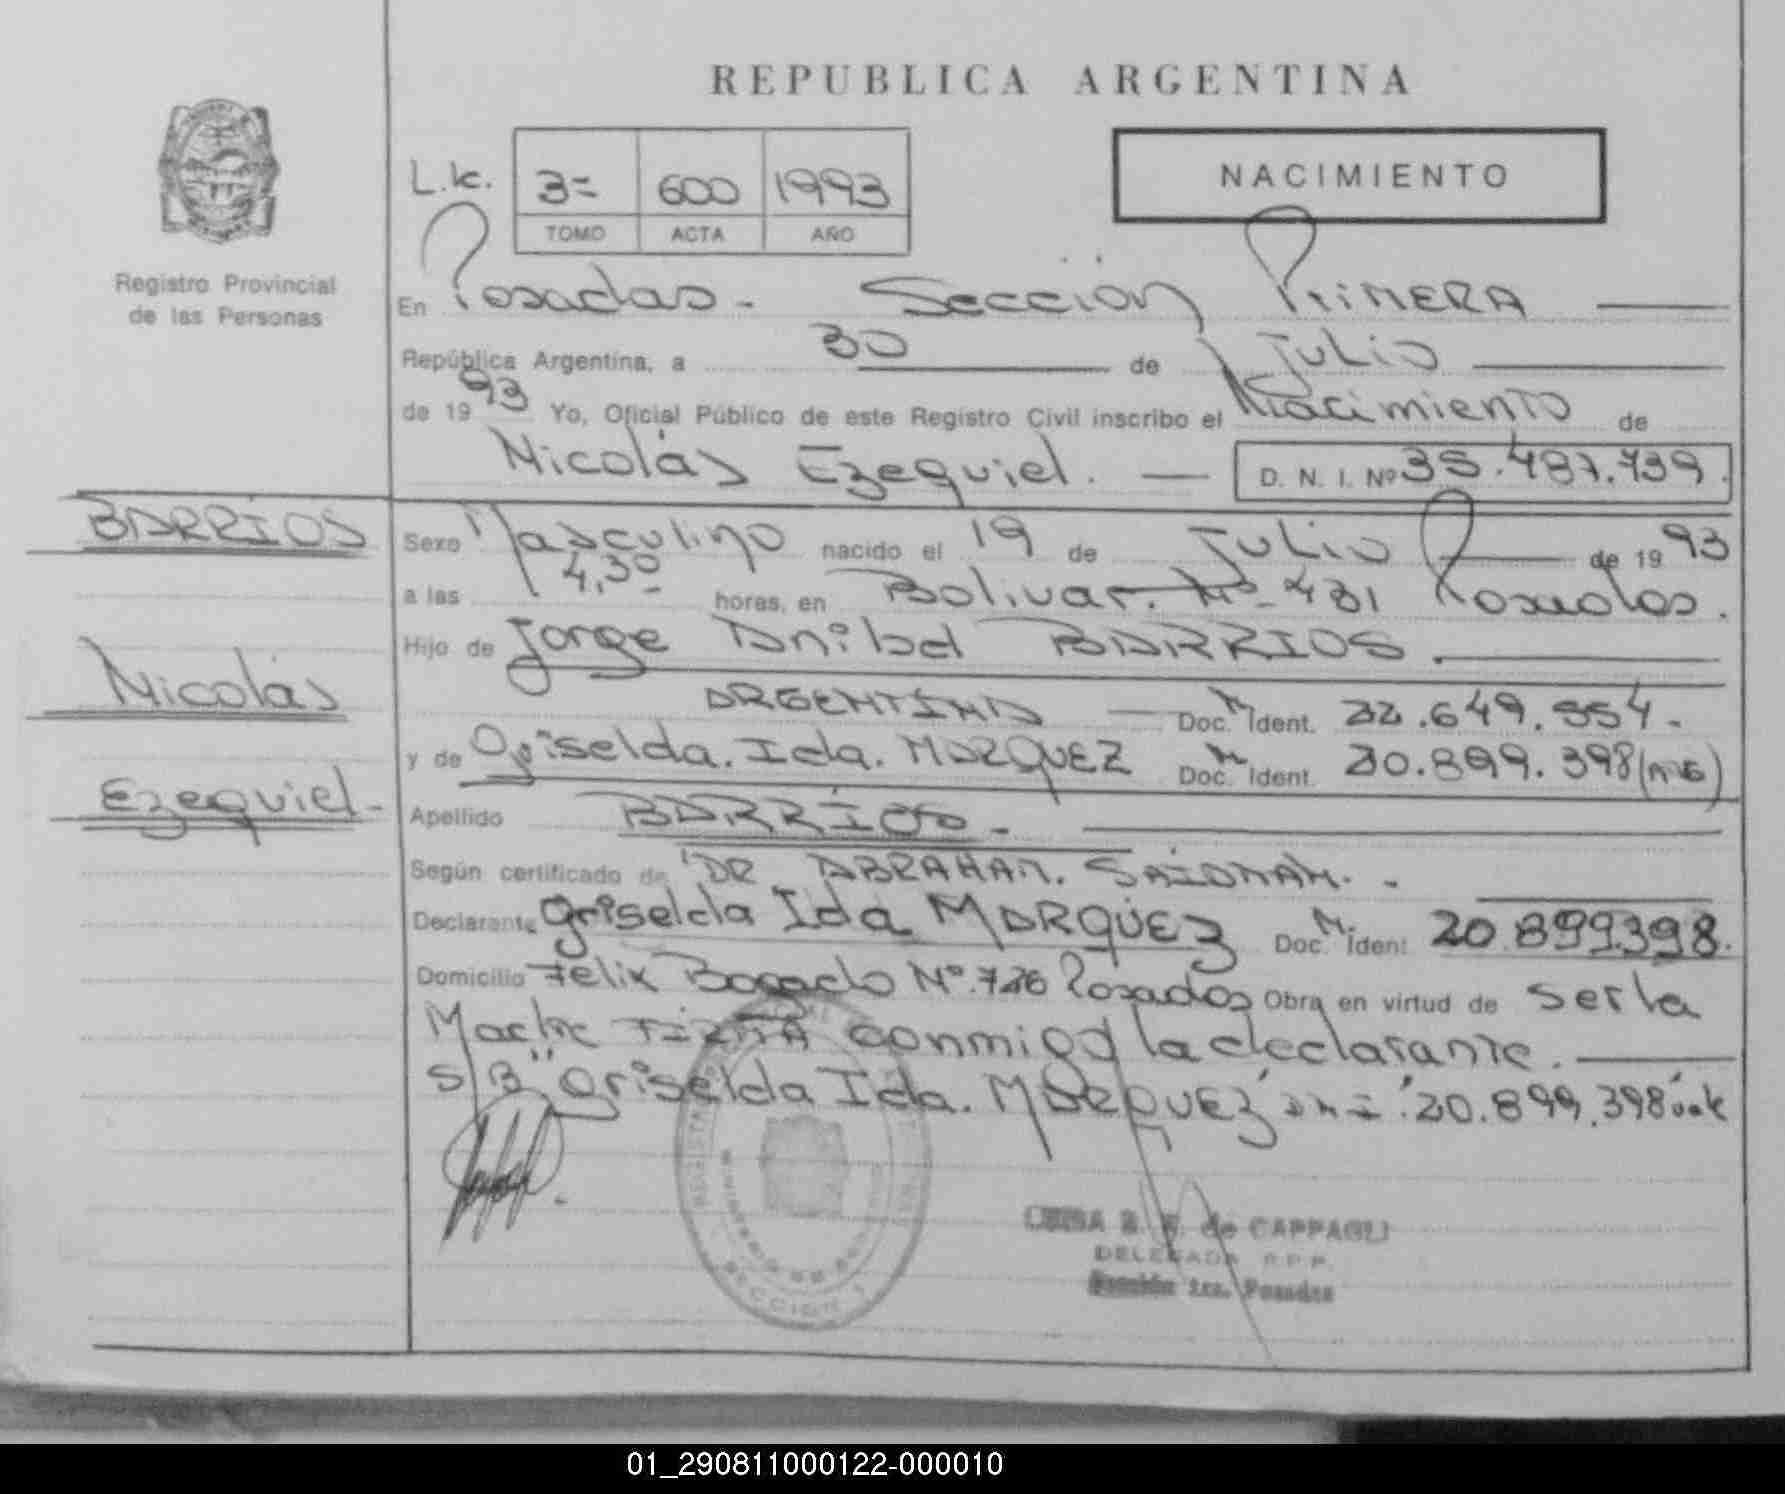 REPUBLICA ARGENTINA
NACIMIENTO
L.k. 3= 600 1993
TOMO ACTA AÑO
Registro Provincial
de las Personas
En Posadas - Sección PRIMERA
República Argentina, a 30 de Julio
de 1993 Yo, Oficial Público de este Registro Civil inscribo el Nacimiento de
Nicolás Ezequiel. — D. N. I. Nº 35.487.739.
BARRIOS
Nicolás
Ezequiel-
Sexo Masculino nacido el 19 de Julio de 1993
a las 4,30 horas, en Bolivar. Nº 481 Posadas.
Hijo de Jorge Anibal BARRIOS.
ARGENTINO — Doc. M Ident. 22.649.554.
y de Griselda. Ida. MARQUEZ Doc. M Ident. 20.899.398
Apellido BARRIOS.-
Según certificado de DR ABRAHAM.
Declarante Griselda Ida MARQUEZ Doc. M. Ident 20.899.398.
Domicilio Felix Bogado Nº 726 Posadas Obra en virtud de ser la
Madre FIRMA conmigo la declarante.
S/B "Griselda Ida. MARQUEZ 20.899.398
de CAPPAGLI
DELEGADA R.P.P.
Sección 1ra. Posadas
SECCION 1
01_290811000122-000010